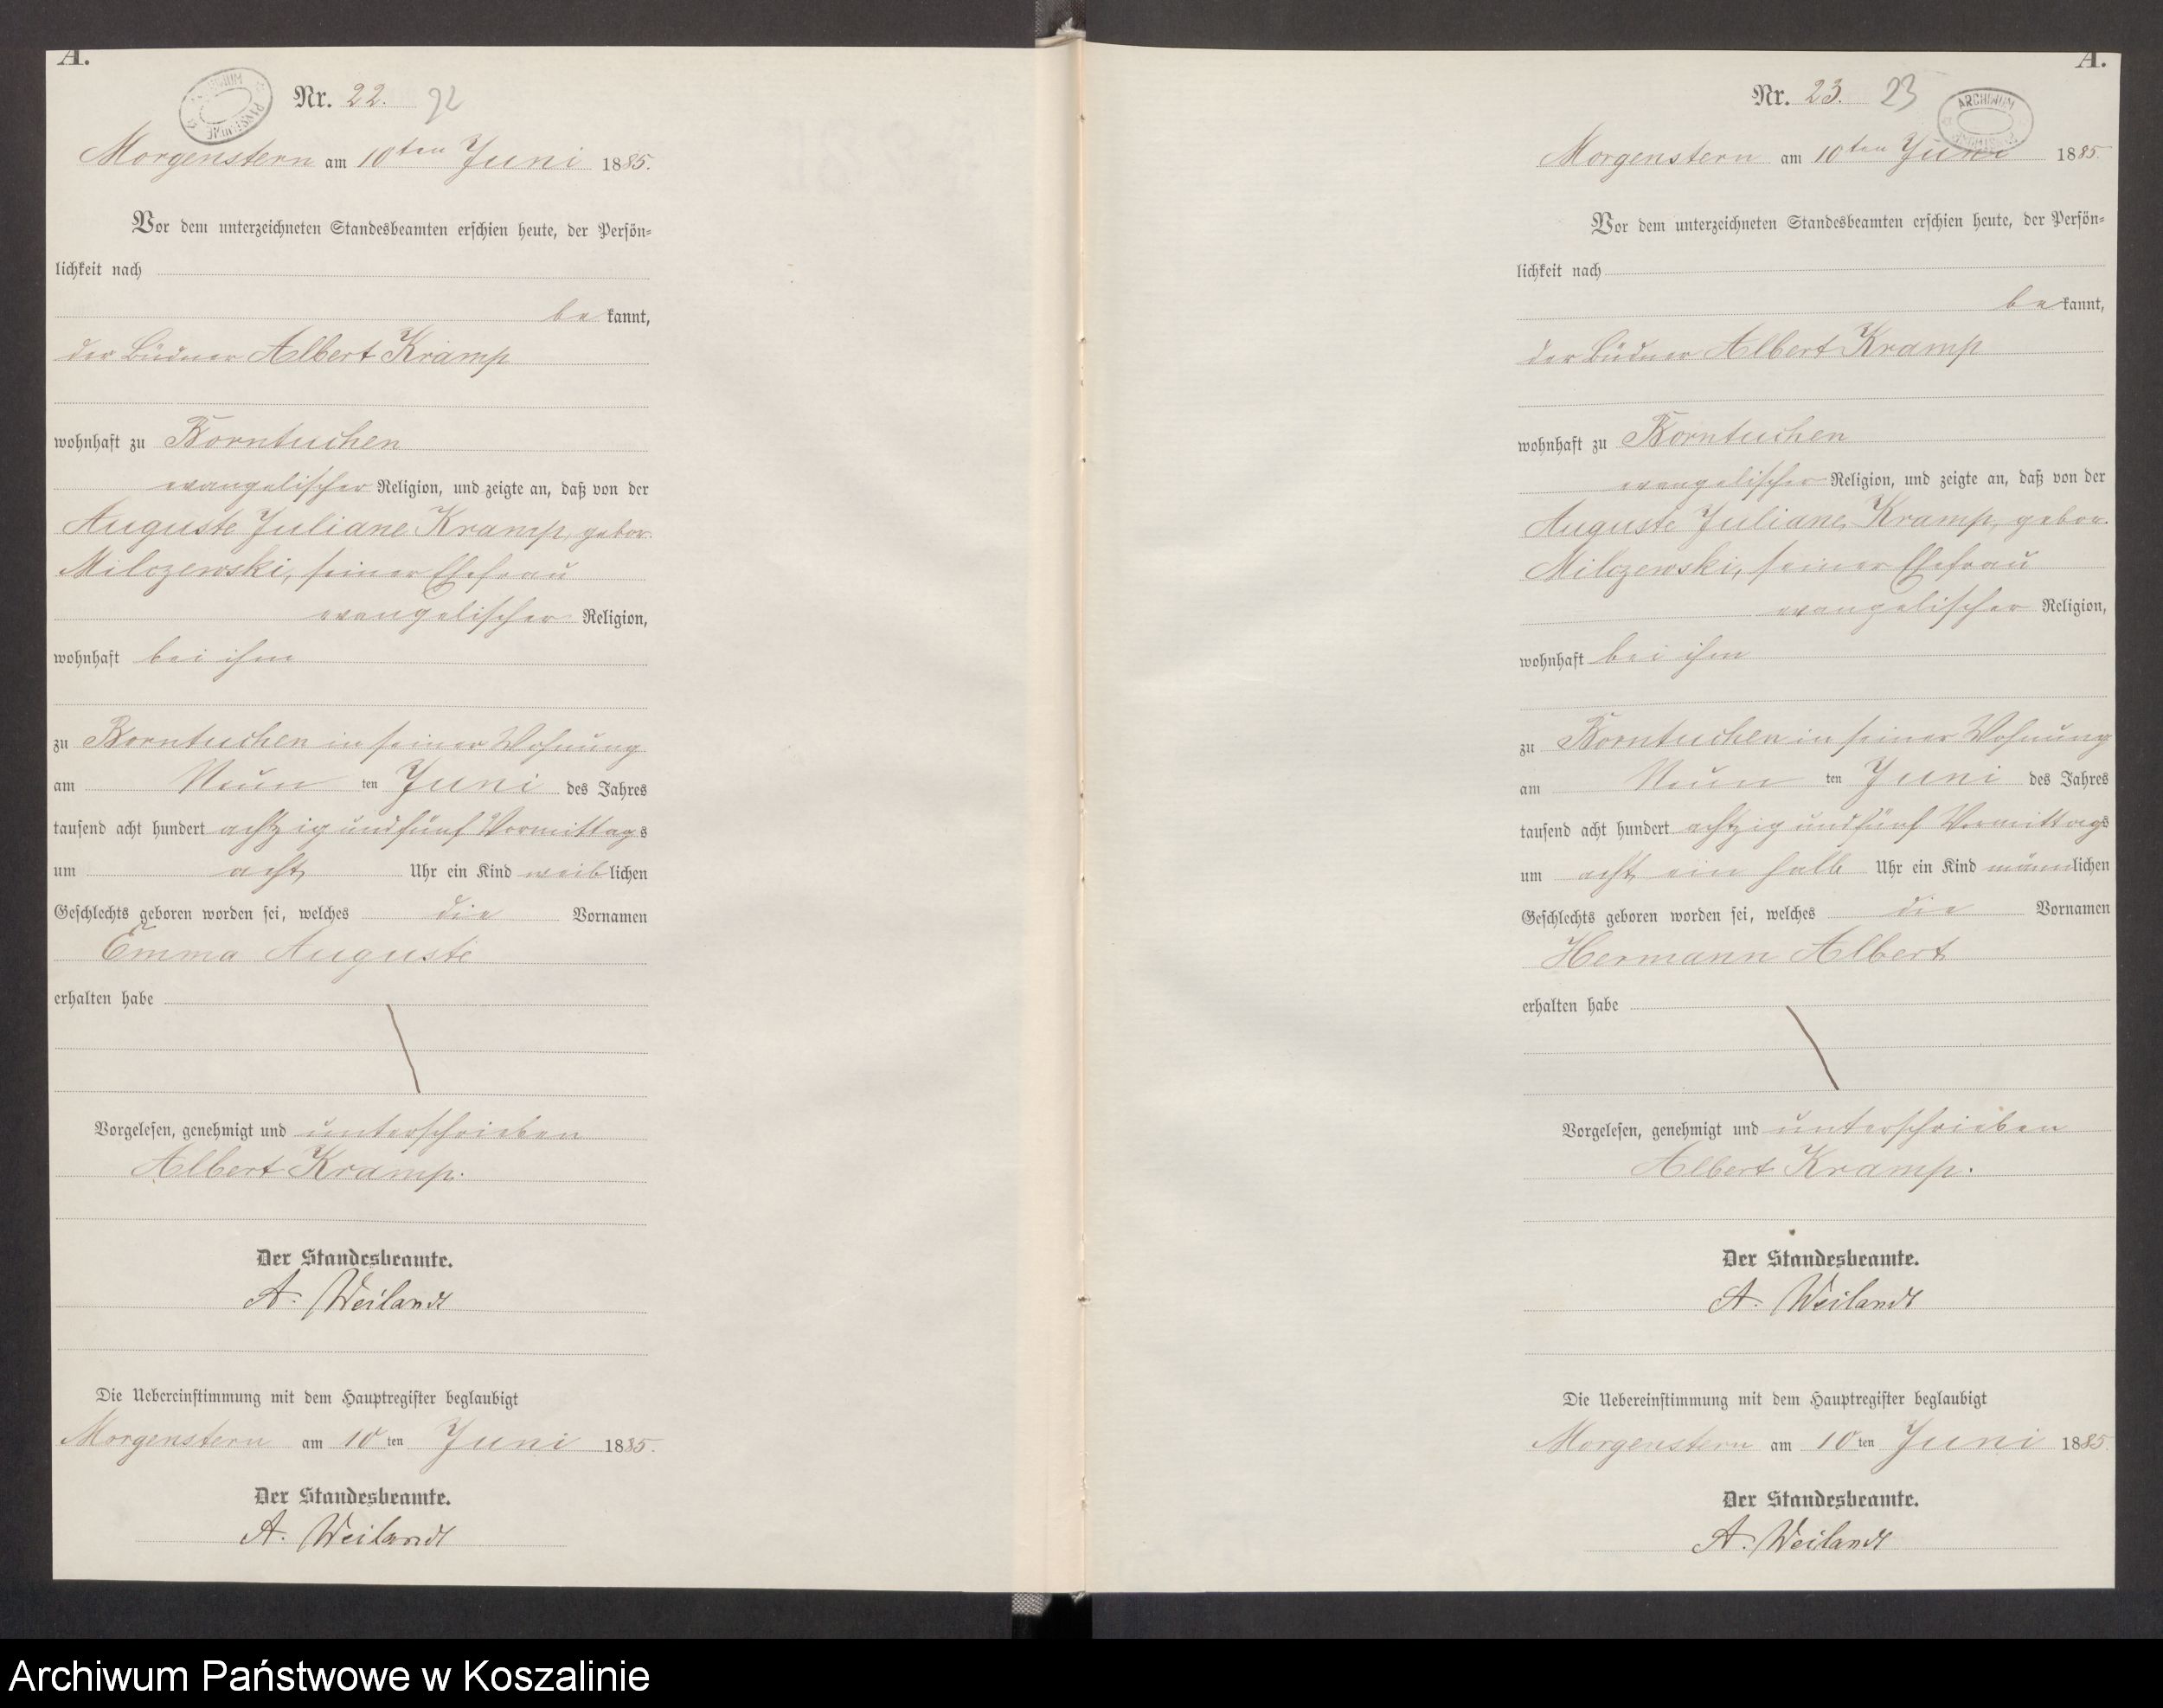 A.
Nr. 22. 22
Morgenstern am 10ten Juni 1885.
Vor dem unterzeichneten Standesbeamten erschien heute, der Persön=
lichkeit nach
bekannt,
der Büdner Albert Kramp
wohnhaft zu Borntuchen
evangelischer Religion, und zeigte an, daß von der
Auguste Juliane Kramp, gebor.
Milczewski, seiner Ehefrau
evangelischer Religion,
wohnhaft bei ihm
zu Borntuchen in seiner Wohnung
am Neun ten Juni des Jahres
tausend acht hundert achtzig und fünf Vormittags
um acht Uhr ein Kind weiblichen
Geschlechts geboren worden sei, welches die Vornamen
Emma Auguste
erhalten habe
Vorgelesen, genehmigt und unterschrieben
Albert Kramp.
Der Standesbeamte.
A. Weilandt
Die Uebereinstimmung mit dem Hauptregister beglaubigt
Morgenstern am 10ten Juni 1885.
Der Standesbeamte.
A. Weilandt
A.
Nr. 23. 23
ARCHIWUM
Morgenstern am 10ten Juni 1885.
Vor dem unterzeichneten Standesbeamten erschien heute, der Persön=
lichkeit nach
bekannt,
der Büdner Albert Kramp
wohnhaft zu Borntuchen
evangelischer Religion, und zeigte an, daß von der
Auguste Juliane Kramp, gebor.
Milczewski, seiner Ehefrau
evangelischer Religion,
wohnhaft bei ihm
zu Borntuchen in seiner Wohnung
am Neun ten Juni des Jahres
tausend acht hundert achtzig und fünf Vormittags
um acht ein halb Uhr ein Kind männlichen
Geschlechts geboren worden sei, welches die Vornamen
Hermann Albert
erhalten habe
Vorgelesen, genehmigt und unterschrieben
Albert Kramp.
Der Standesbeamte.
A. Weilandt
Die Uebereinstimmung mit dem Hauptregister beglaubigt
Morgenstern am 10ten Juni 1885.
Der Standesbeamte.
A. Weilandt
Archiwum Państwowe w Koszalinie